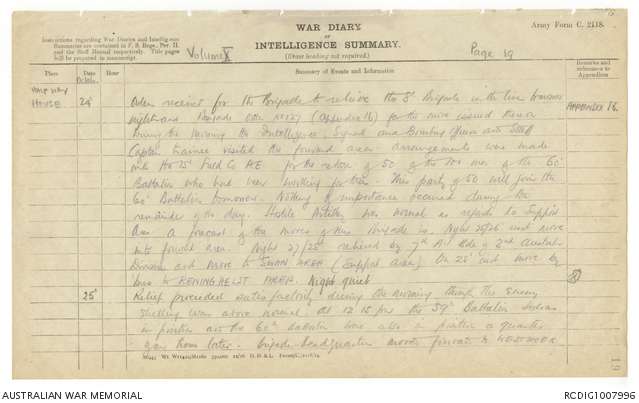 WAR DIARY
Army Form C. 2118.
Instructions regarding War Diaries and Intelligence
Summaries are contained in F. S. Regs., Part II.
and the Staff Manual respectively. Title pages
will be prepared in manuscript.
Volume
INTELLIGENCE SUMMARY.
(Erase heading not required).
Page 19
Place
Date
Hour
Summary of Events and Information
Remarks and
references to
Appendices
October
HALF WAY
HOUSE
24
Order received for the Brigade to relieve the 8 Brigade in the line tomorrow
night and Brigade Order (Appendix 16) for the move issued
APPENDIX 16
During the morning the Intelligence, Signal and Bombing Officers and Staff
Captain trainee visited the forward area. Arrangements were made
with the 15 Field Co AE for the return of 50 of the 100 men of the 60
Battalion who had been working for them. This party of 50 will join the
60 Battalion tomorrow. Nothing of importance occurred during the
remainder of the day. Hostile Artillery was normal as regards to Support
Area. A forecast of the moves of this Brigade is. Night 25/26 inst move
into forward area. Night 27/28 relieved by 7th Bde of 2nd Australian
Division and move to SWAN AREA (Support area) On 28 inst move by
bus to RENINGHELST AREA. Night quiet
25
Relief proceeded satisfactorily during the morning though the enemy
shelling was above normal. At 12.15 pm the 59 Battalion
in position and the 60th Battalion were also in position a quarter
hour later. Brigade headquarters moved forward to WESTHOEK
19
AUSTRALIAN WAR MEMORIAL
RCDIG1007996